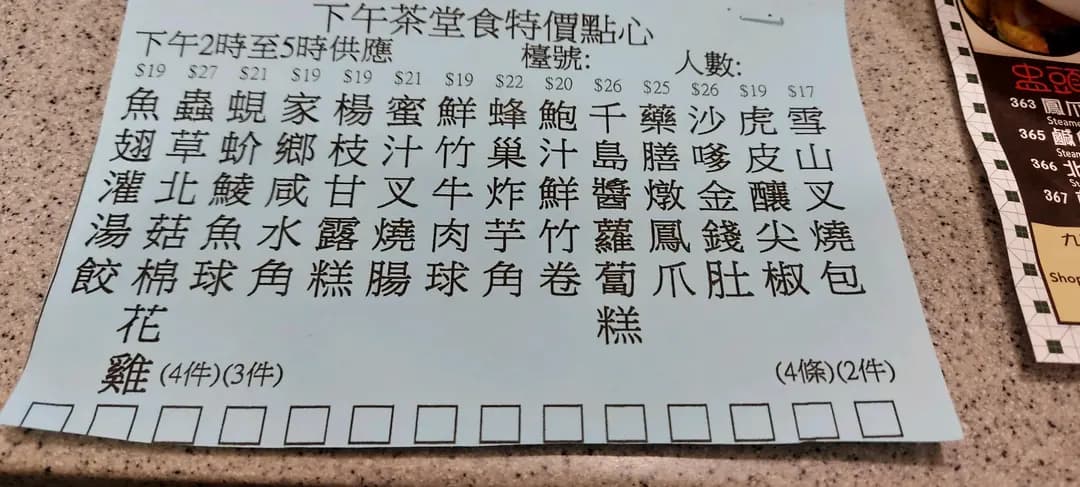 下午茶堂食特價點心
下午2時至5時供應
檯號:
人數:
$19 $27 $21 $19 $19 $21 $19 $22 $20 $26 $25 $26 $19 $17
雪山叉燒包
虎皮釀尖椒
沙嗲金錢肚
藥膳燉鳳爪
千島醬蘿蔔糕
鮑汁鮮竹卷
蜂巢炸芋角
鮮竹牛肉球
蜜汁叉燒腸
楊枝甘露糕
家鄉咸水角
蜆蚧鯪魚球
蟲草北菇棉花雞
魚翅灌湯餃
(4件)(3件)
(4條)(2件)
363 鳳爪
Steame
365 鹹
Stea
366 北
St
367
九
Shop